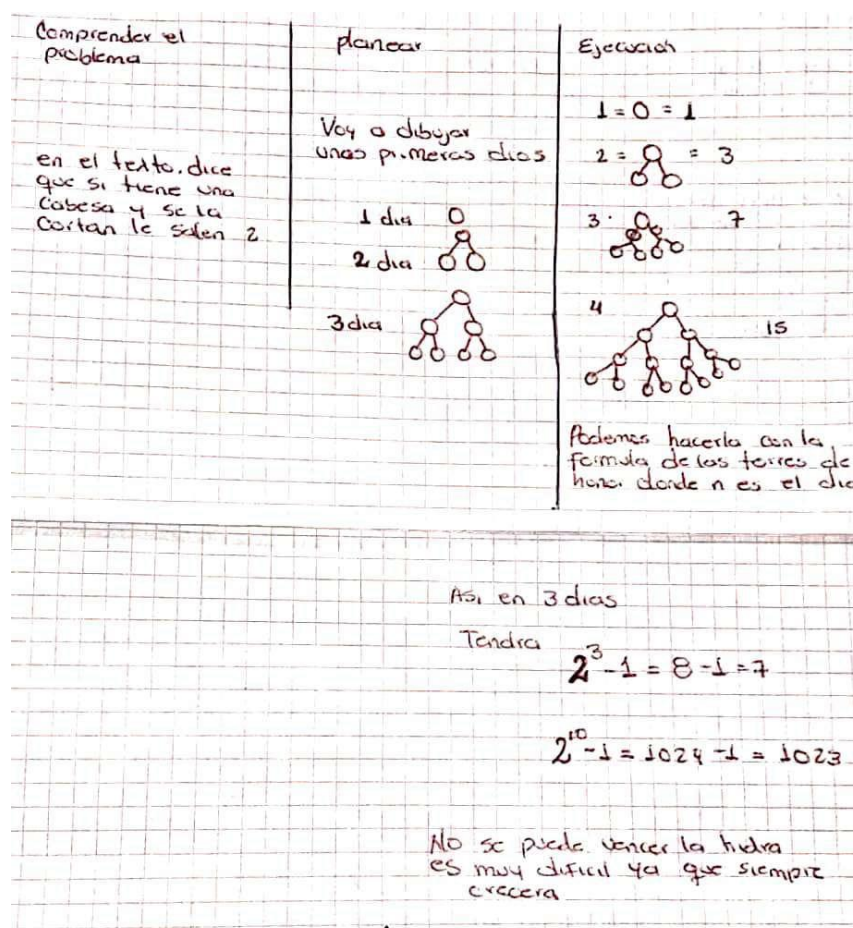 Comprender el
problema
en el texto. dice
que si tiene una
cabesa y se la
cortan le salen 2
planear
Voy a dibujar
unos primeros dias
1 dia
2 dia
3 dia
Ejecución
1 = 0 = 1
2 = = 3
3. 7
4 15
Podemos hacerla con la
formula de las torres de
hanoi donde n es el dia
Asi en 3 dias
Tendra
2³-1 = 8-1 = 7
2¹⁰-1 = 1024 -1 = 1023
No se puede vencer la hidra
es muy dificil ya que siempre
crecera